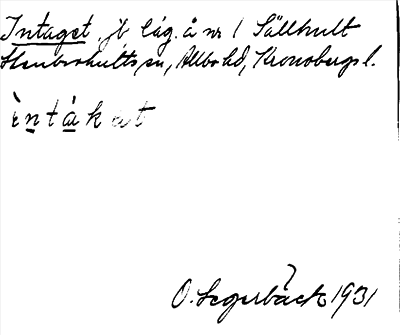 Intaget, jb låg. å nr 1 Sällhult
Stenbrohults sn, Allbo hd, Kronobergs l.
ìntákat
O. Segerbäck 1931